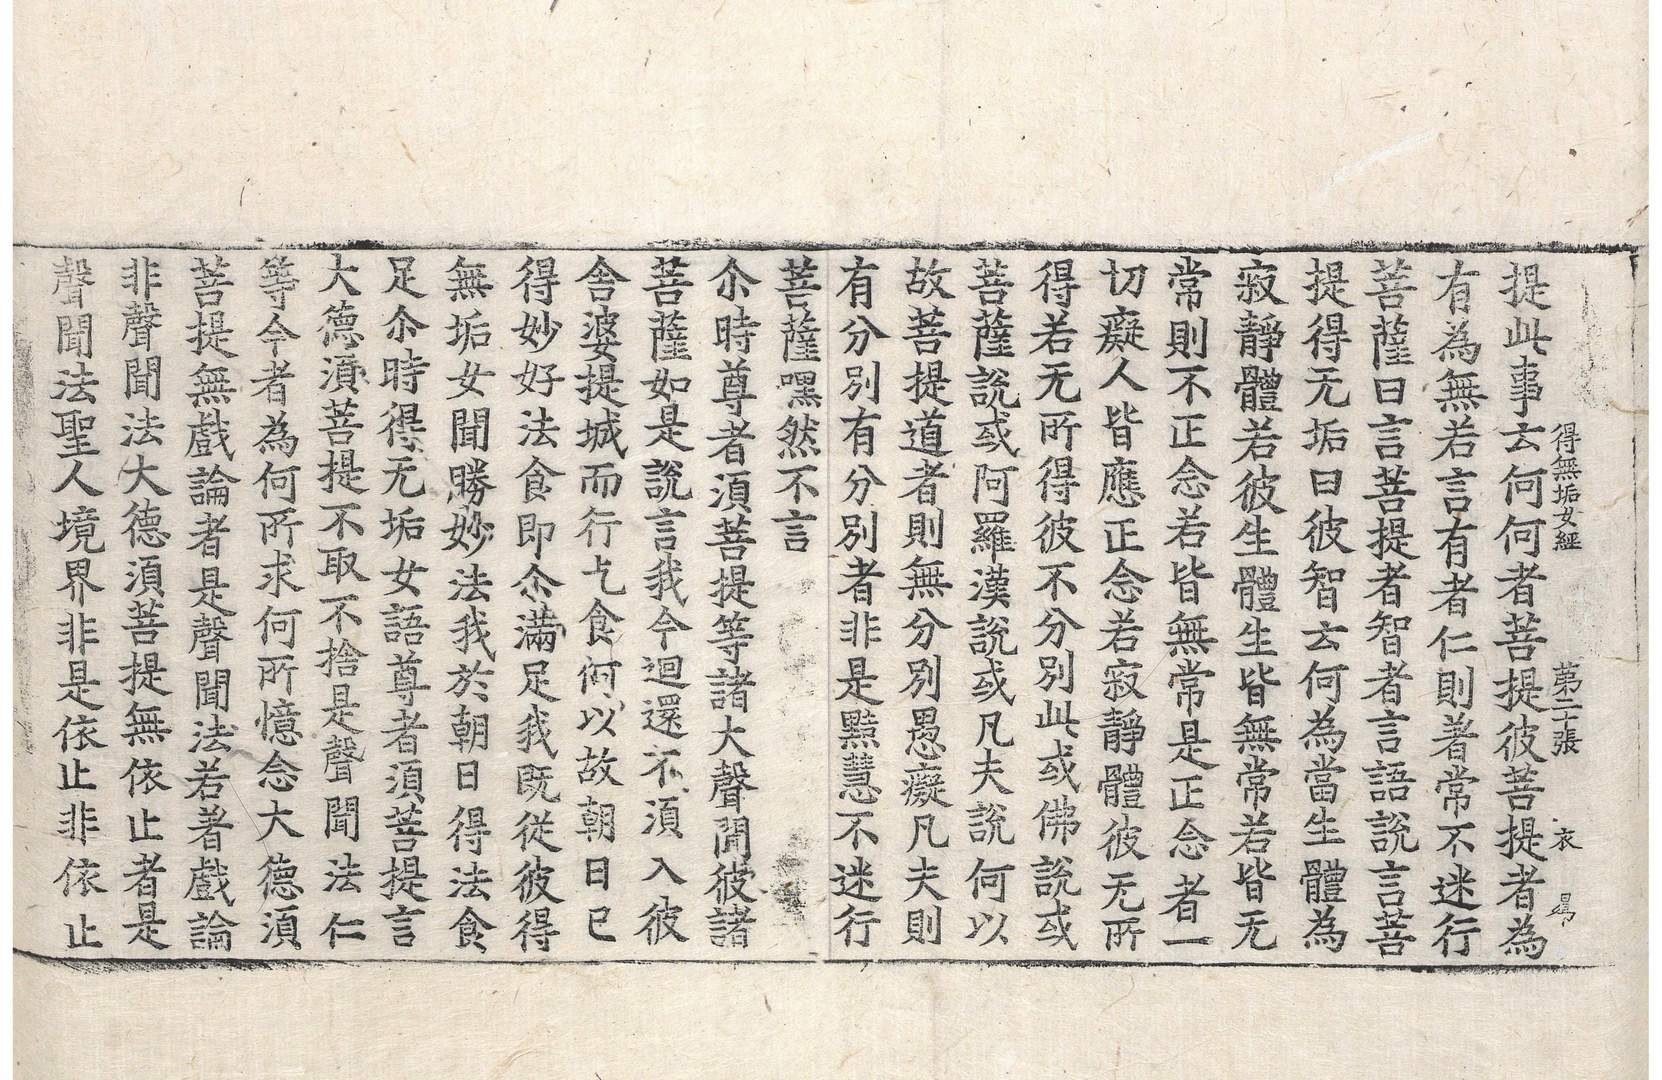 得無垢女經　第二十張　衣
提此事云何何者菩提彼菩提者為
有為無若言有者仁則著常不迷行
菩薩曰言菩提者智者言語說言菩
提得无垢曰彼智云何為當生體為
寂靜體若彼生體生皆無常若皆无
常則不正念若皆無常是正念者一
切癡人皆應正念若寂靜體彼无所
得若无所得彼不分別此或佛說或
菩薩說或阿羅漢說或凡夫說何以
故菩提道者則無分別愚癡凡夫則
有分別有分別者非是黠慧不迷行
菩薩嘿然不言
尒時尊者湏菩提等諸大聲聞彼諸
菩薩如是說言我今迴還不湏入彼
舍婆提城而行乞食何以故朝日已
得妙好法食即尒滿足我既從彼得
無垢女聞勝妙法我於朝日得法食
足尒時得无垢女語尊者湏菩提言
大德湏菩提不取不捨是聲聞法仁
等今者為何所求何所憶念大德湏
菩提無戲論者是聲聞法若著戲論
非聲聞法大德湏菩提無依止者是
聲聞法聖人境界非是依止非依止